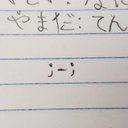 やまだ：てん
;-;